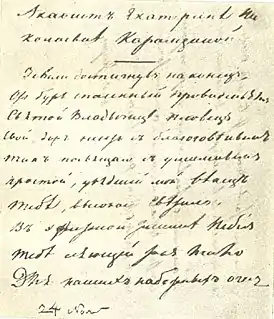 Акафистъ Екатеринѣ Ни
колаевнѣ Карамзиной
Земли достигнувъ наконецъ
Отъ бурь спасенный провидѣньемъ
Святой Владычицѣ пловецъ
Свой даръ несетъ съ благоговѣньемъ
Такъ посвящаю съ умиленьемъ
Простой, увядшій мой вѣнецъ
Тебѣ, высокое свѣтило
Въ эфирной тишинѣ небесъ
Тебѣ сіяющей такъ мило
Для нашихъ набожныхъ очесъ
24 Ноя